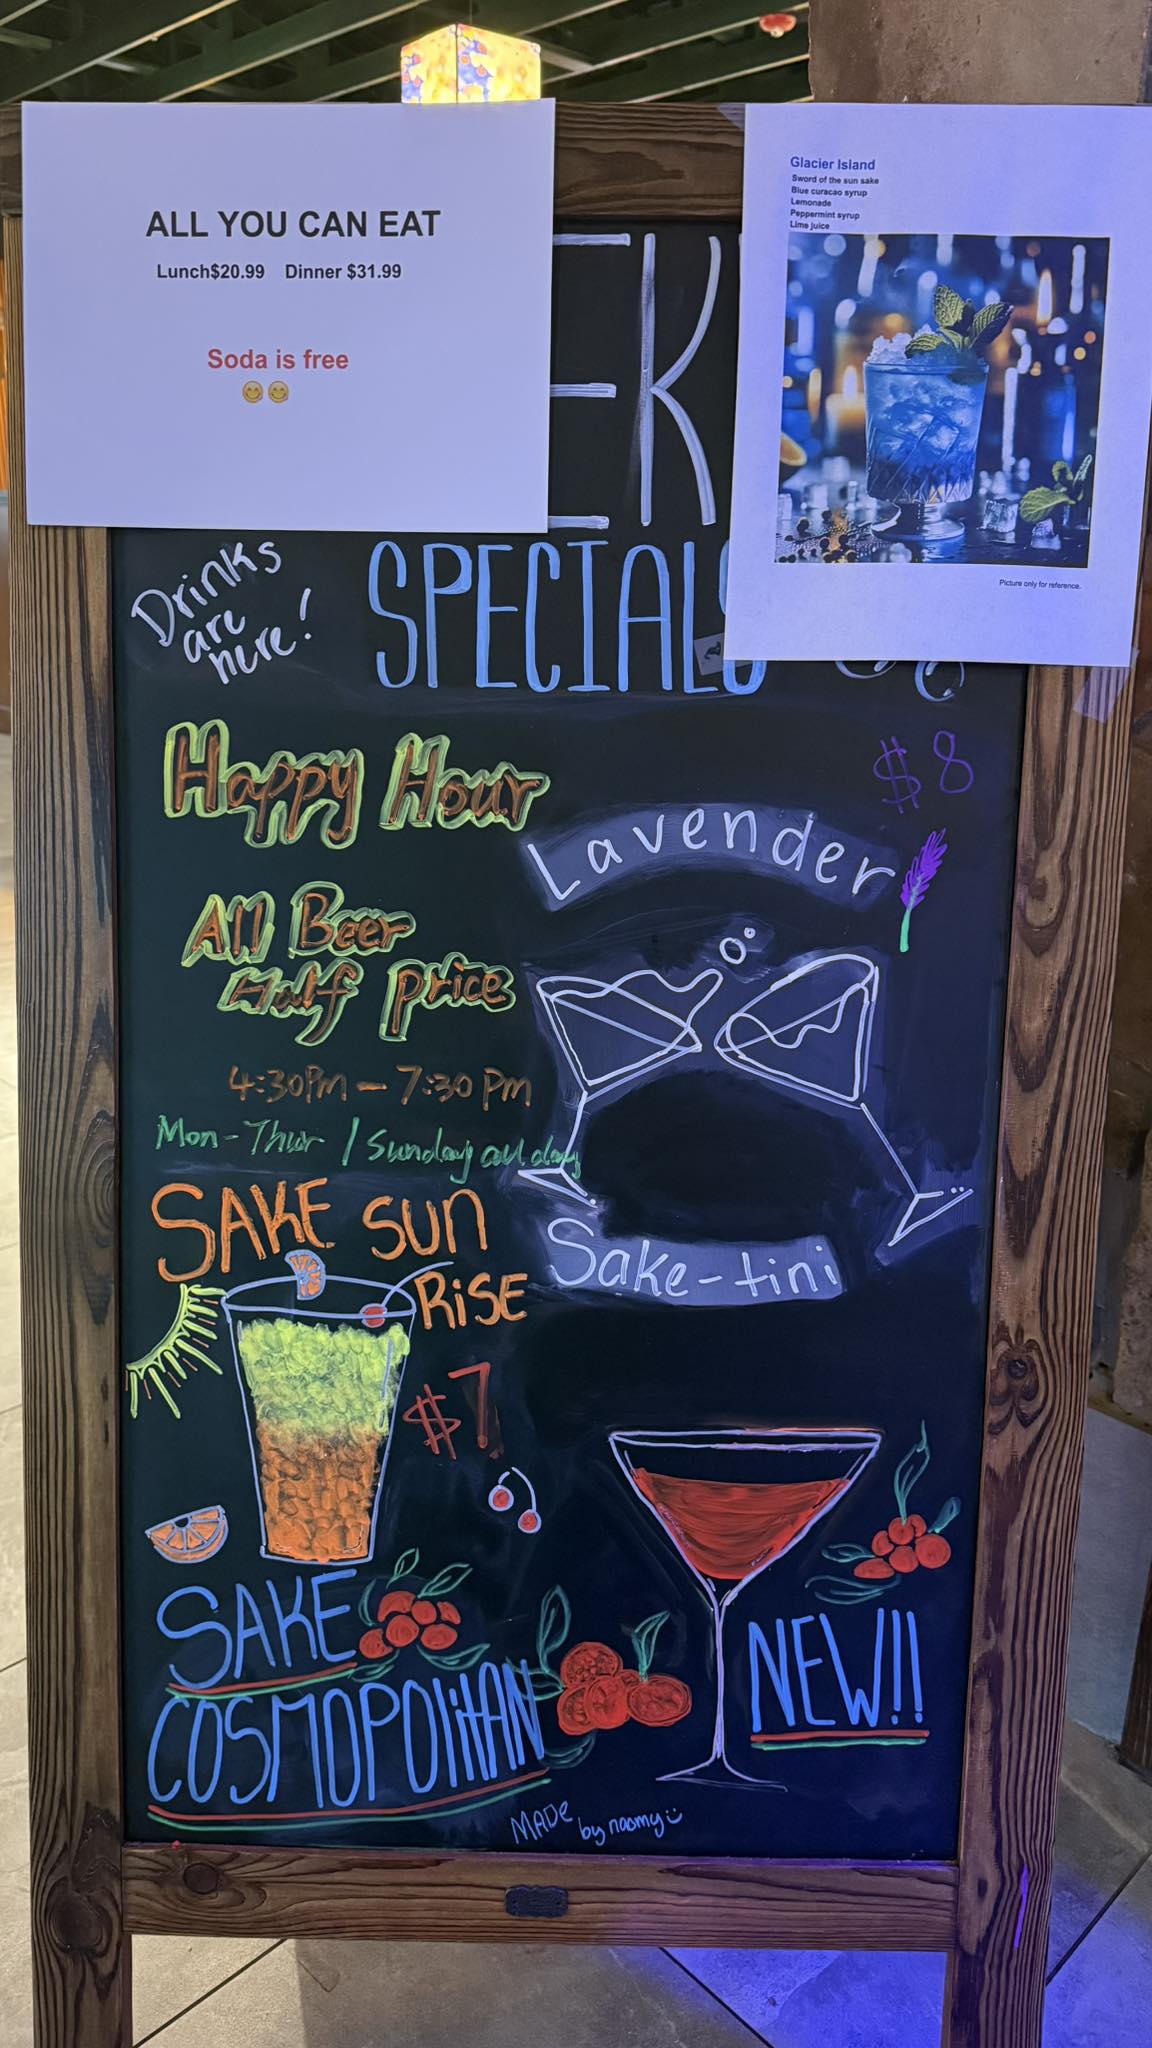 ALL YOU CAN EAT
Lunch$20.99 Dinner $31.99
Soda is free
Glacier Island
Sword of the sun sake
Blue curacao syrup
Lemonade
Peppermint syrup
Lime juice
Picture only for reference.
EK
Drinks
are
here!
SPECIALS
Happy Hour
All Beer
Half price
4:30Pm - 7:30 Pm
Mon-Thur / Sunday all day
$8
Lavender
Sake-tini
SAKE SUN
RiSE
$7
SAKE
COSMOPOLitAN
NEW!!
MADe
by naomy